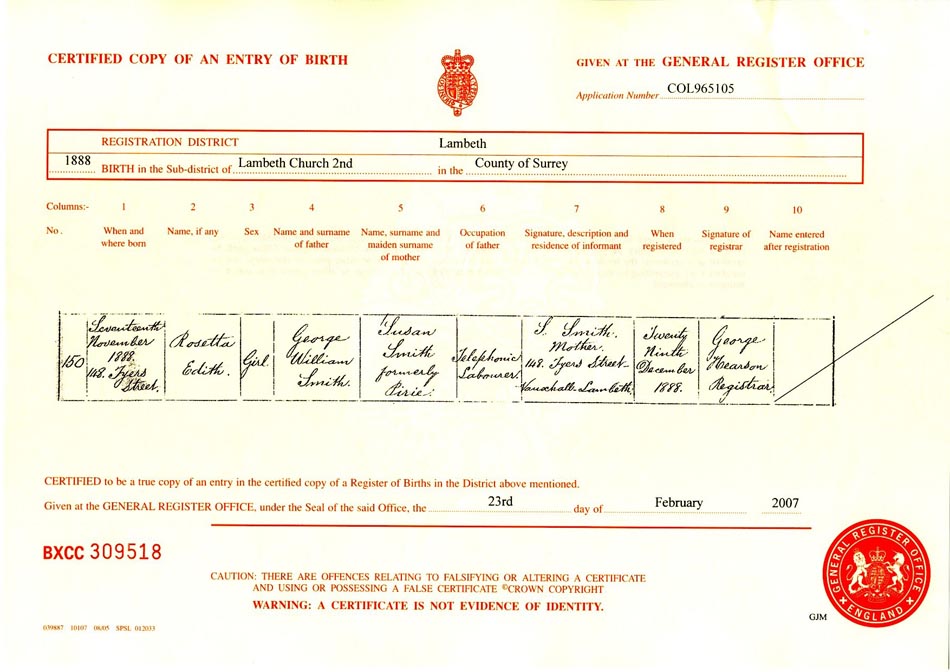 CERTIFIED COPY OF AN ENTRY OF BIRTH
GIVEN AT THE GENERAL REGISTER OFFICE
Application Number COL965105
REGISTRATION DISTRICT Lambeth
1888 BIRTH in the Sub-district of Lambeth Church 2nd in the County of Surrey
Columns:- 1 2 3 4 5 6 7 8 9 10
No. When and where born
Name, if any
Sex
Name and surname of father
Name, surname and maiden surname of mother
Occupation of father
Signature, description and residence of informant
When registered
Signature of registrar
Name entered after registration
150
Seventeenth
November
1888.
148. Tyers
Street
Rosetta
Edith.
Girl
George
William
Smith.
Susan
Smith
formerly
Pirie.
Telephonic
Labourer
S. Smith.
Mother
148. Tyers Street
Vauxhall Lambeth
Twenty
Ninth
December
1888.
George
Hearson
Registrar
CERTIFIED to be a true copy of an entry in the certified copy of a Register of Births in the District above mentioned.
Given at the GENERAL REGISTER OFFICE, under the Seal of the said Office, the 23rd day of February 2007
BXCC 309518
CAUTION: THERE ARE OFFENCES RELATING TO FALSIFYING OR ALTERING A CERTIFICATE
AND USING OR POSSESSING A FALSE CERTIFICATE ©CROWN COPYRIGHT
WARNING: A CERTIFICATE IS NOT EVIDENCE OF IDENTITY.
GENERAL REGISTER OFFICE
ENGLAND
GJM
039887 10107 08/05 SPSL 012033